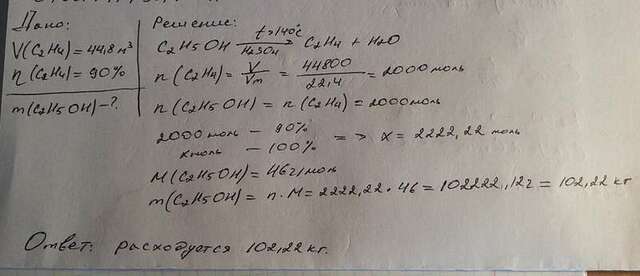 Дано:
Решение:
V(C2H4) = 44,8 м³
η(C2H4) = 90%
m(C2H5OH) - ?
C2H5OH t>140°C H2SO4 → C2H4 + H2O
n(C2H4) = V/Vm = 44800/22,4 = 2000 моль
n(C2H5OH) = n(C2H4) = 2000 моль
2000 моль - 90%
x моль - 100% => x = 2222,22 моль
M(C2H5OH) = 46 г/моль
m(C2H5OH) = n·M = 2222,22 · 46 = 102222,12 г = 102,22 кг
Ответ: расходуется 102,22 кг.